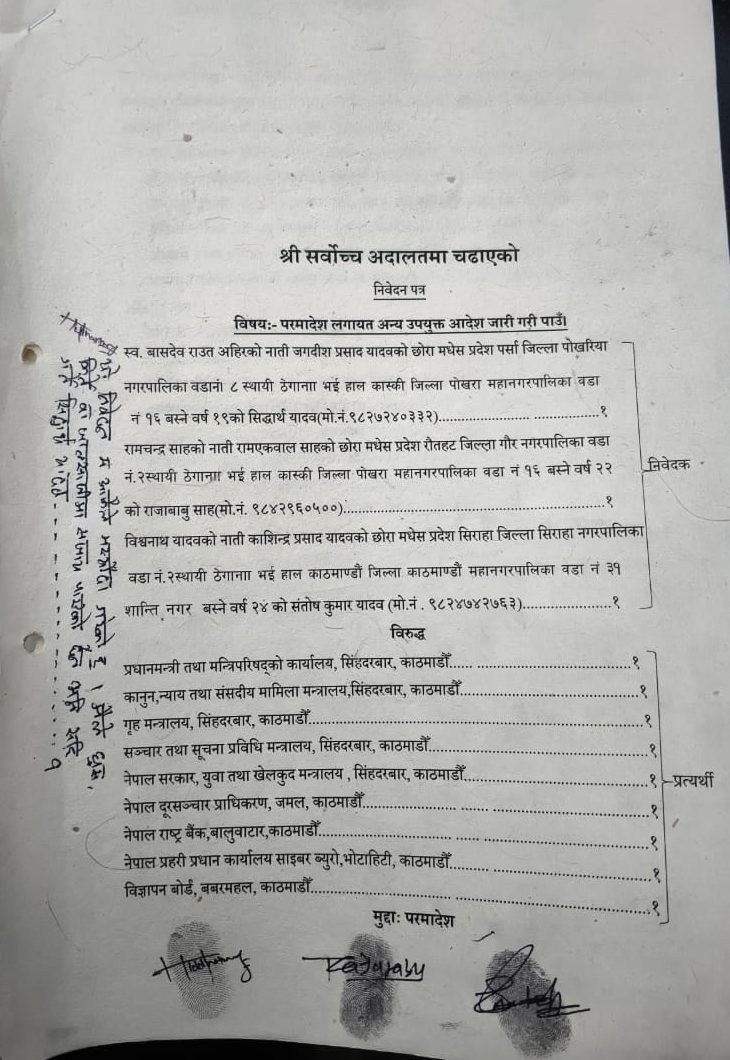 श्री सर्वोच्च अदालतमा चढाएको
निवेदन पत्र
विषयः- परमादेश लगायत अन्य उपयुक्त आदेश जारी गरी पाउँ।
स्व. बासदेव राउत अहिरको नाती जगदीश प्रसाद यादवको छोरा मधेस प्रदेश पर्सा जिल्ला पोखरिया
नगरपालिका वडानं। ८ स्थायी ठेगानाा भई हाल कास्की जिल्ला पोखरा महानगरपालिका वडा
नं १६ बस्ने वर्ष १९को सिद्धार्थ यादव(मो.नं.९८२७२४०३३२)..................... ......................१
रामचन्द्र साहको नाती रामएकवाल साहको छोरा मधेस प्रदेश रौतहट जिल्ला गौर नगरपालिका वडा
नं.२स्थायी ठेगानाा भई हाल कास्की जिल्ला पोखरा महानगरपालिका वडा नं १६ बस्ने वर्ष २२
को राजाबाबु साह(मो.नं. ९८४२९६०५००)......................................................१
निवेदक
विश्वनाथ यादवको नाती काशिन्द्र प्रसाद यादवको छोरा मधेस प्रदेश सिराहा जिल्ला सिराहा नगरपालिका
वडा नं.२स्थायी ठेगानाा भई हाल काठमाण्डौं जिल्ला काठमाण्डौं महानगरपालिका वडा नं ३१
शान्ति नगर बस्ने वर्ष २४ को संतोष कुमार यादव (मो.नं . ९८२४७४२७६३)...................१
विरुद्ध
प्रधानमन्त्री तथा मन्त्रिपरिषद्को कार्यालय, सिंहदरबार, काठमाडौँ...... ................................१
कानुन,न्याय तथा संसदीय मामिला मन्त्रालय,सिंहदरबार, काठमाडौँ.....................................१
गृह मन्त्रालय, सिंहदरबार, काठमाडौँ...............................................................१
सञ्चार तथा सूचना प्रविधि मन्त्रालय, सिंहदरबार, काठमाडौँ............................................१
नेपाल सरकार, युवा तथा खेलकुद मन्त्रालय , सिंहदरबार, काठमाडौँ.....................................१
प्रत्यर्थी
नेपाल दूरसञ्चार प्राधिकरण, जमल, काठमाडौँ..................... ...... ..........................१
नेपाल राष्ट्र बैंक,बालुवाटार,काठमाडौँ........................... ...... ..........................१
नेपाल प्रहरी प्रधान कार्यालय साइबर ब्युरो,भोटाहिटी, काठमाडौँ.....................................१
विज्ञापन बोर्ड, बबरमहल, काठमाडौँ............................ ...... ..........................१
मुद्दाः परमादेश
Rajababu